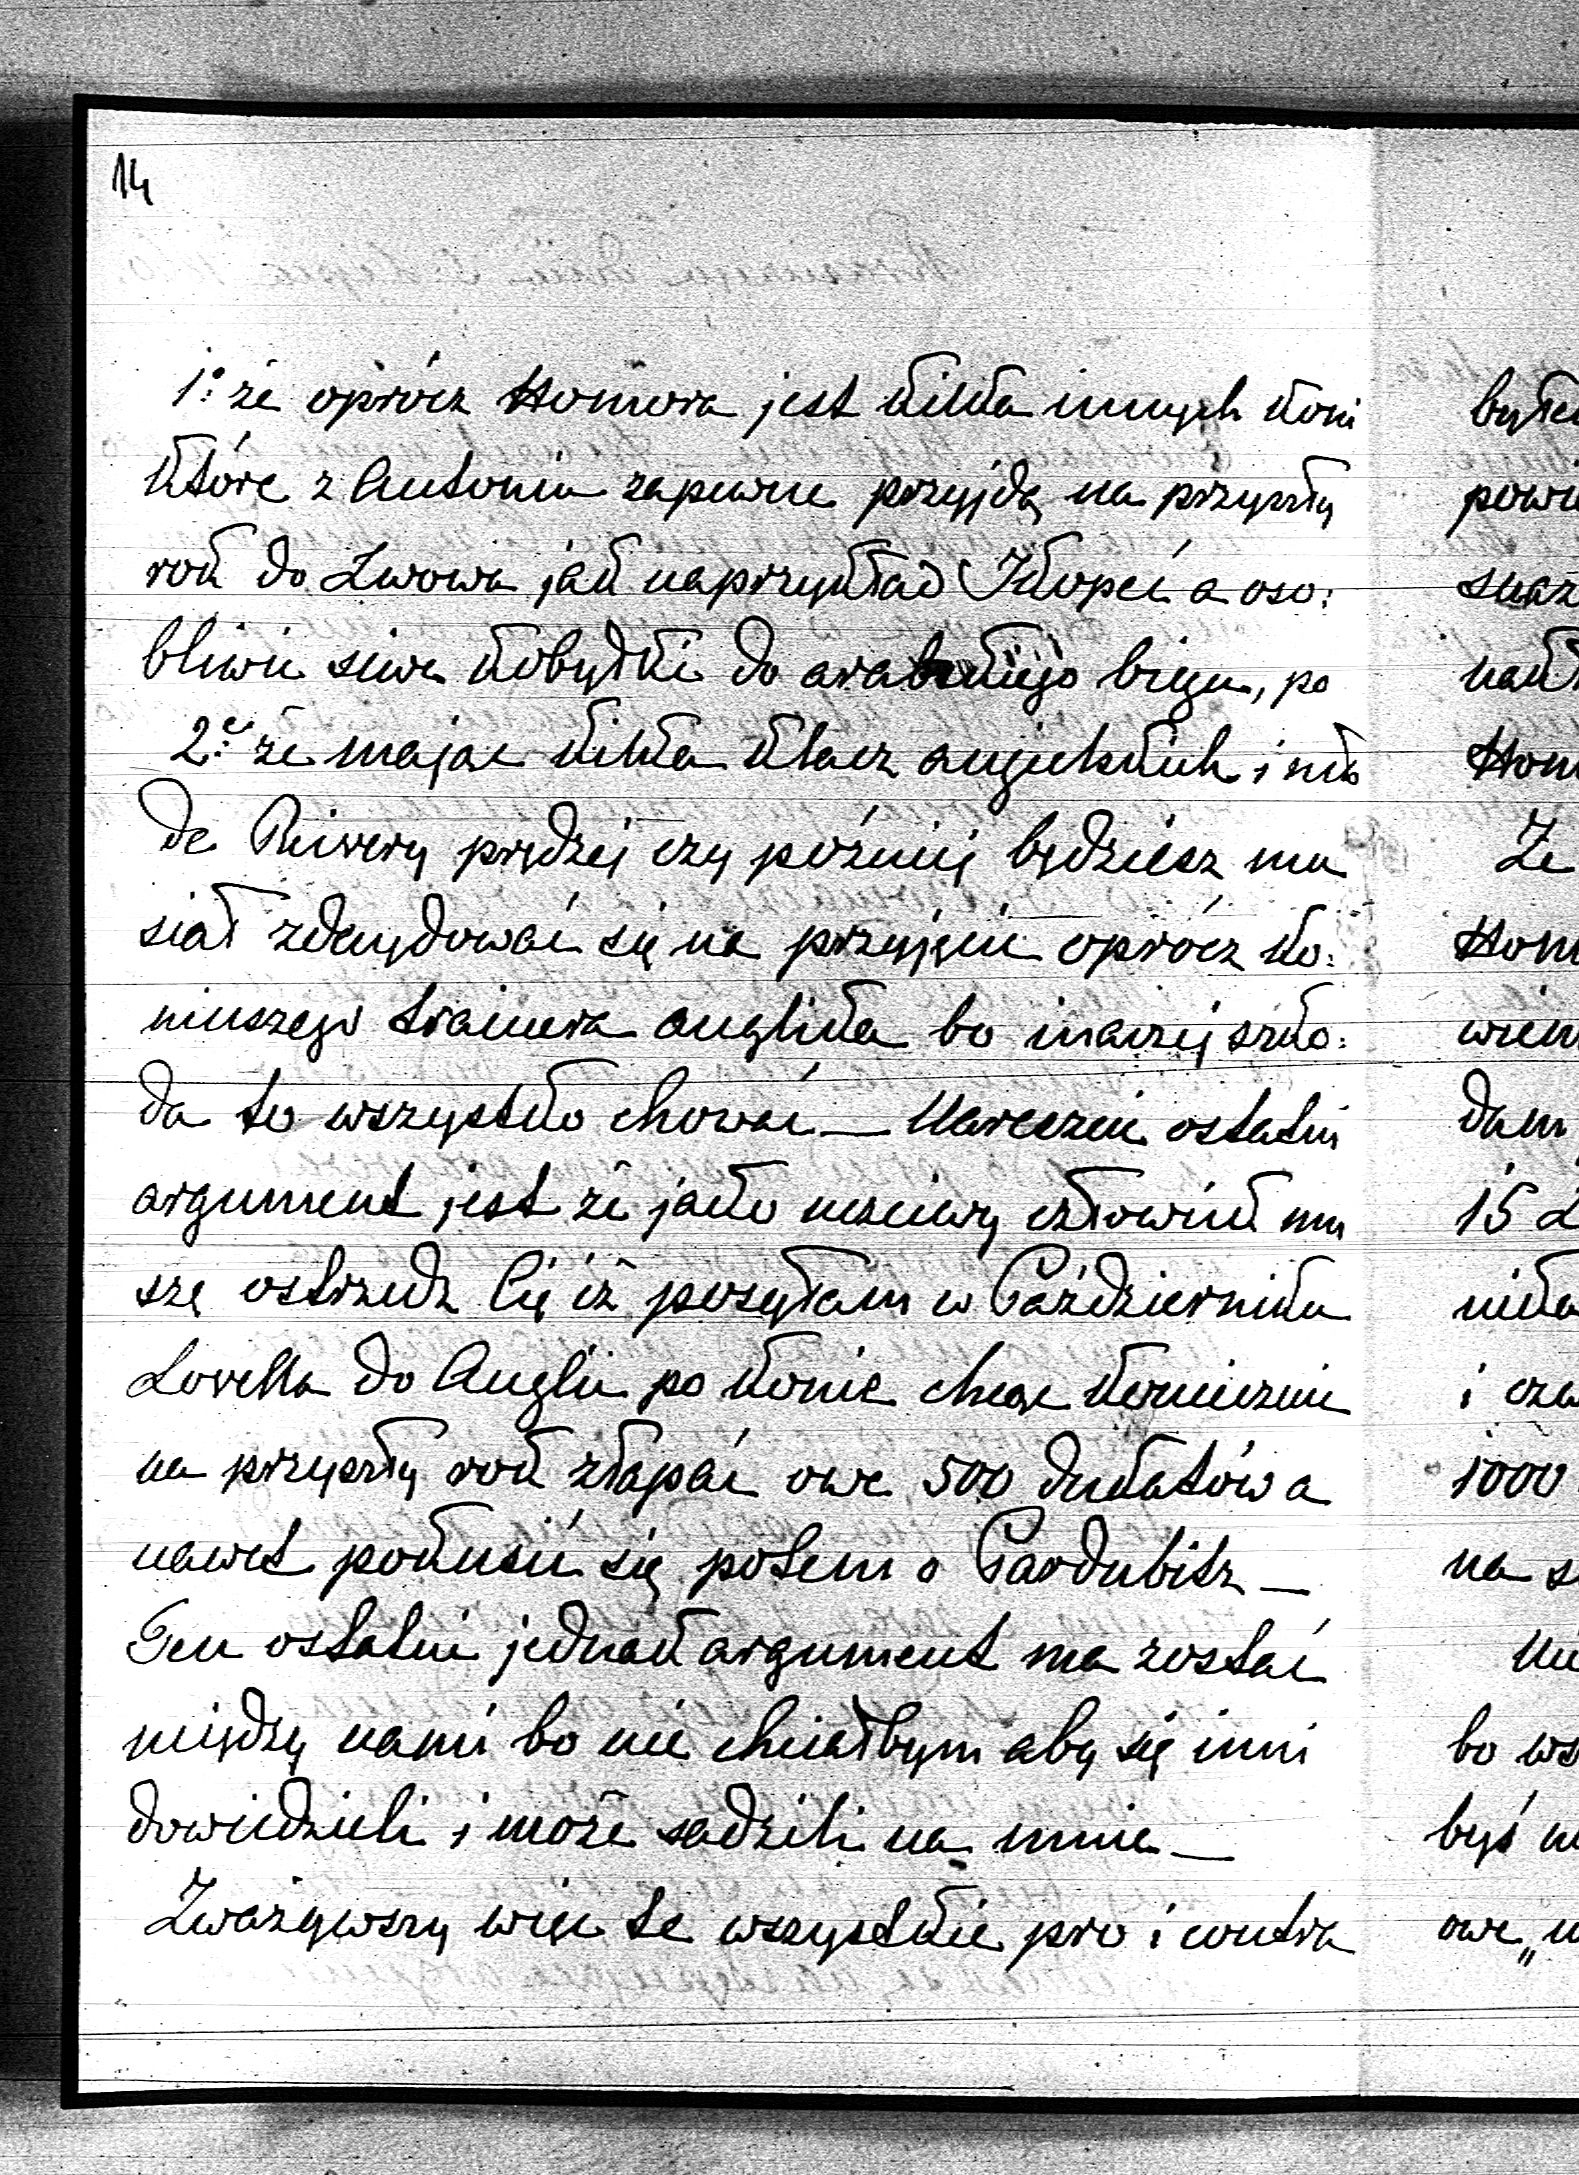 14
1º że oprócz Homora jest kilka innych koni
które z Antonin zapewne przyjdą na przyszły
rok do Lwowa jak naprzykład Kłopeć a oso:
bliwie siwe kobyłki do arabskiego biegu, po
2e że mając kilka klacz angielskich i mło
de Riwery prędzej czy później będziesz mu
siał zdecydować się na przyjęcie oprócz ko:
niuszego trainera anglika bo inaczej szko:
da to wszystko chować — Nareszcie ostatni
argument jest że jako uczciwy człowiek mu
szę ostrzedz Cię iż posyłam w Październiku
Lovella do Anglii po konie chcąc koniecznie
na przyszły rok złapać owe 500 dukatów a
nawet pokusić się potem o Pardubitz —
Ten ostatni jednak argument ma zostać
między nami bo nie chciałbym aby się inni
dowiedzieli i może sadzili na mnie —
Zważywszy więc te wszystkie pro i contra
byłe
powi
skaz
nakł
Hom
Że
Hom
wiem
dam
15 L
nika
i cza
1000
na s
Nie
bo ws
być n
owe „n